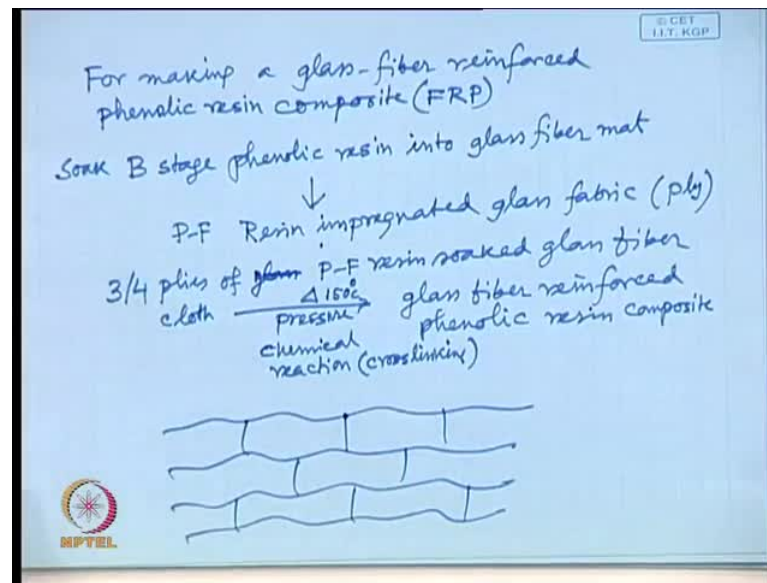 © CET
I.I.T. KGP
For making a glass-fiber reinforced
phenolic resin composite (FRP)
Soak B stage phenolic resin into glass fiber mat
↓
P-F Resin impregnated glass fabric (ply)
3/4 plies of P-F resin soaked glass fiber
cloth Δ 150°C → glass fiber reinforced
pressure phenolic resin composite
chemical
reaction (crosslinking)
NPTEL